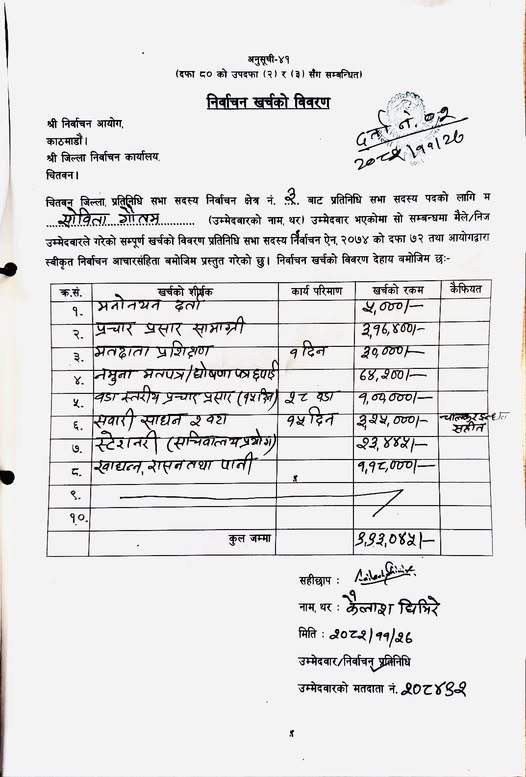 अनुसूची-४१
(दफा ८० को उपदफा (२) र (३) सँग सम्बन्धित)
निर्वाचन खर्चको विवरण
दर्ता नं. ७१२
२०८२/११/२६
श्री निर्वाचन आयोग,
काठमाडौं।
श्री जिल्ला निर्वाचन कार्यालय,
चितवन।
चितवन जिल्ला, प्रतिनिधि सभा सदस्य निर्वाचन क्षेत्र नं. ३ बाट प्रतिनिधि सभा सदस्य पदको लागि म
सोविता गौतम (उम्मेदवारको नाम, थर) उम्मेदवार भएकोमा सो सम्बन्धमा मैले/निज
उम्मेदवारले गरेको सम्पूर्ण खर्चको विवरण प्रतिनिधि सभा सदस्य निर्वाचन ऐन, २०७४ को दफा ७२ तथा आयोगद्वारा
स्वीकृत निर्वाचन आचारसंहिता बमोजिम प्रस्तुत गरेको छु। निर्वाचन खर्चको विवरण देहाय बमोजिम छः-
क्र.सं. खर्चको शीर्षक कार्य परिमाण खर्चको रकम कैफियत
१. मनोनयन दर्ता ५,०००/-
२. प्रचार प्रसार सामाग्री ३,१६,४००/-
३. मतदाता प्रशिक्षण १ दिन ३०,०००/-
४. नमुना मतपत्र/घोषणा पत्र छपाई ६४,२००/-
५. वडा स्तरीय प्रचार प्रसार (१५ दिन) २८ वडा
६. सवारी साधन २ वटा १५ दिन ३,२५,०००/- सहित
७. स्टेशनरी (सचिवालय प्रयोग) २३,४४५/-
८. खाद्यान्न, रासन तथा पानी १,१८,०००/-
९.
१०.
कुल जम्मा
सहीछाप :
नाम, थर : कैलाश घिमिरे
मिति : २०८२/११/२६
उम्मेदवार/निर्वाचन प्रतिनिधि
उम्मेदवारको मतदाता नं.